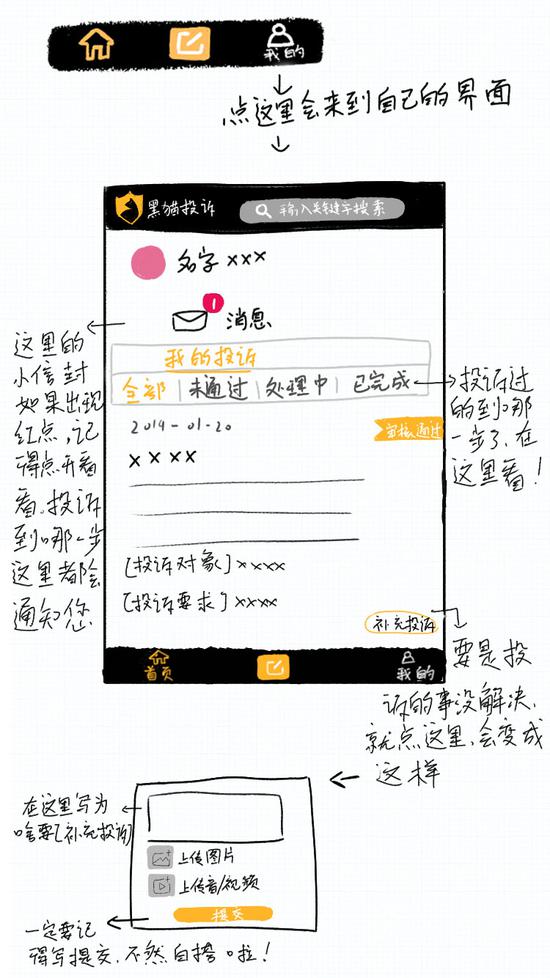 我的
点这里会来到自己的界面
黑猫投诉
输入关键字搜索
名字 xxx
1
消息
我的投诉
全部 | 未通过 | 处理中 | 已完成
2019-01-20
审核通过
xxxx
[投诉对象] xxxx
[投诉要求] xxxx
补充投诉
首页
我的
这里的
小信封
如果出现
红点,记
得点开看
看,投诉
到哪一步
这里都会
通知您
投诉过
的到哪
一步了,在
这里看!
要是投
诉的事没解决,
就点这里,会变成
这样
在这里写为
啥要[补充投诉]
上传图片
上传音/视频
提交
一定要记
得写提交,不然白搭啦!